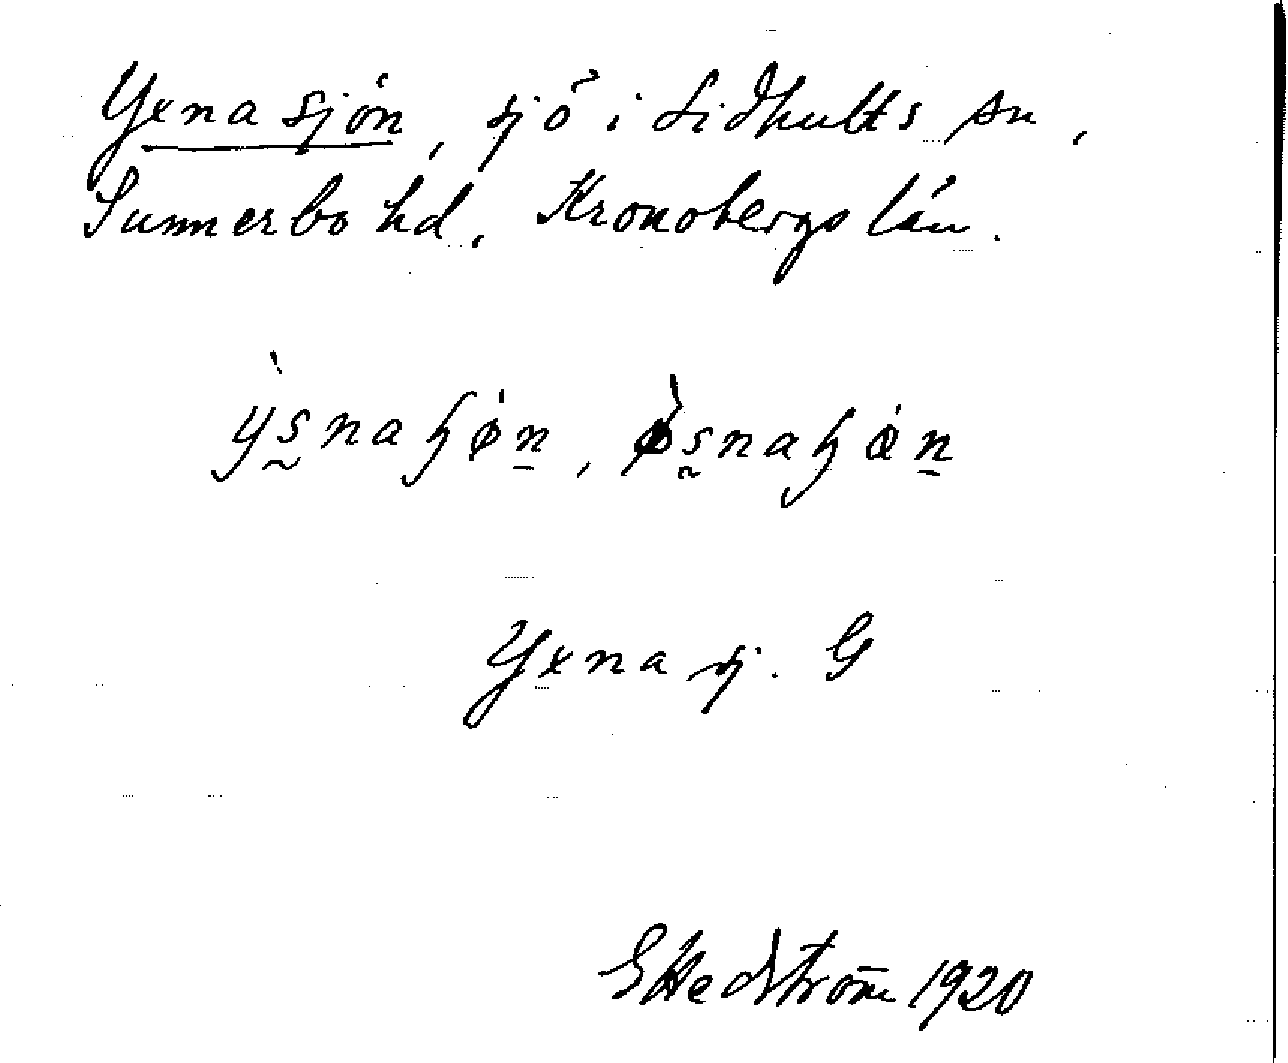 Yxnasjön, sjö i Lidhults sn,
Sunnerbo hd, Kronobergs län.
ỳs̰naɧø̇n̠, ø̀s̰naɧǿn̠
Yxnasj. G
G Hedström 1920